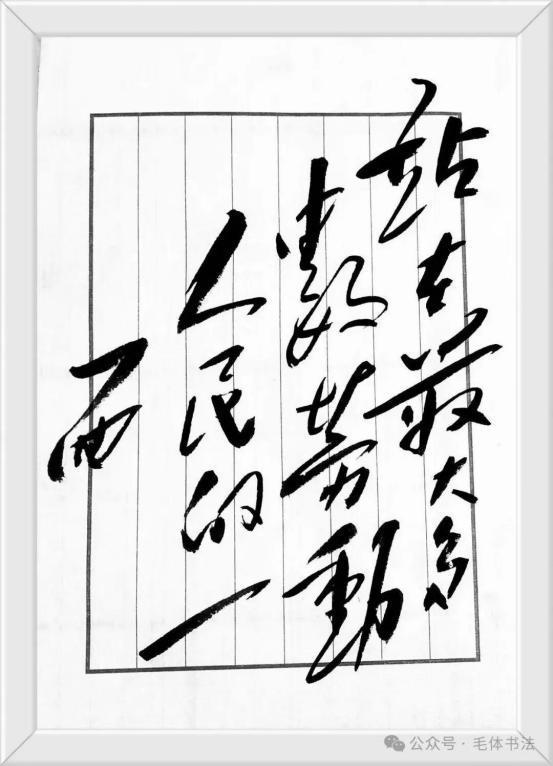 站在最大多
数劳動
人民的一
面
公众号·毛体书法